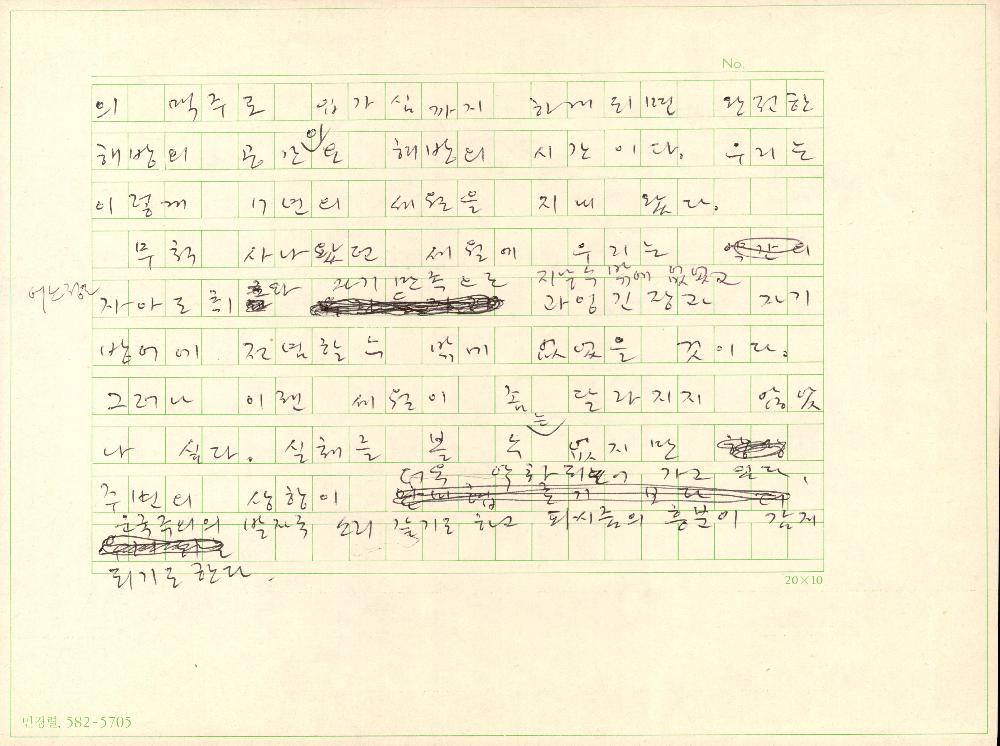 No.
의 맥주로 입가심까지 하게 되면 완전한
해방의 공간이요 해방의 시간이다. 우리는
이렇게 17년의 세월을 지내 왔다.
무척 사나왔던 세월에 우리는
어느정도
자기만족으로 지날 수 밖에 없었고
자아도취와 과잉긴장과 자기
방어에 전념할 수 밖에 없었을 것이다.
그러나 이젠 세월이 좀 달라지지 않았
나 싶다. 실체를 볼 수는 없지만
더욱 악화되어 가고 있다.
주변의 상황이
군국주의의 발자국 소리 같기도 하고 파시즘의 흥분이 감지
되기도 한다.
20×10
민정렬. 582-5705